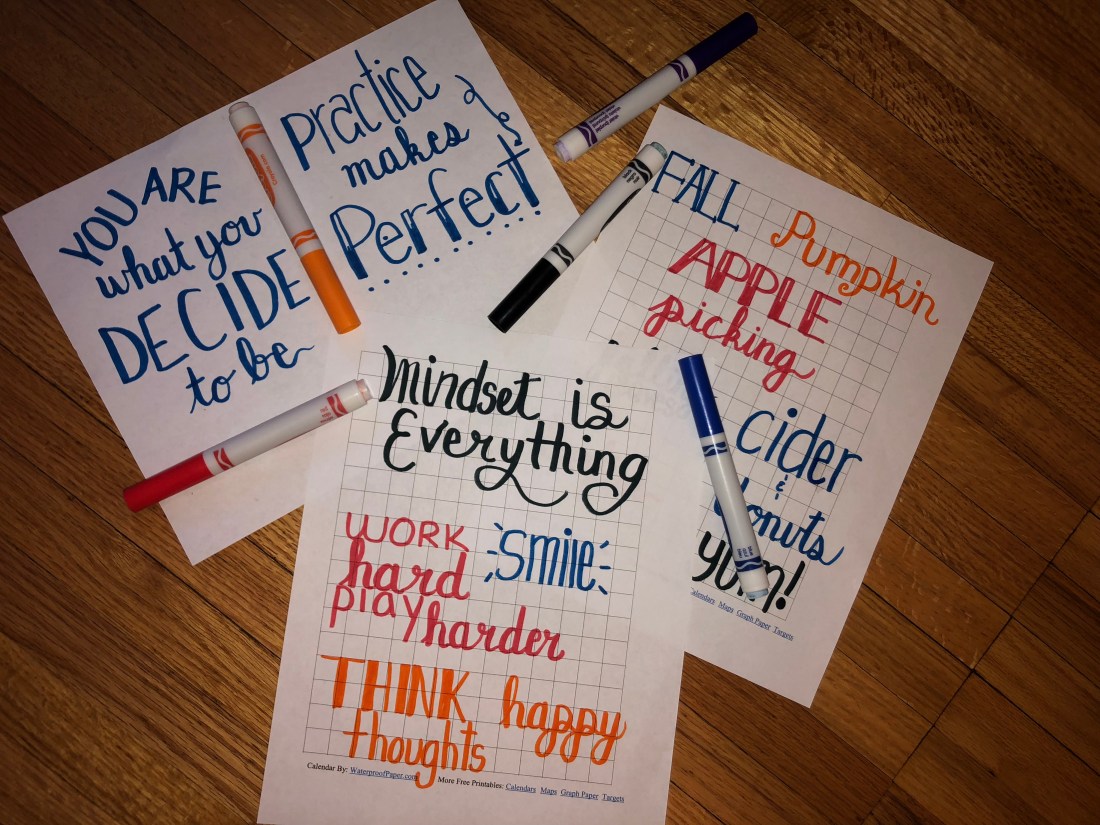 YOU ARE
what you
DECIDE
to be
Practice
makes
Perfect
FALL
Pumpkin
APPLE
picking
cider
&
donuts
yum!
Calendars Maps Graph Paper Targets
Mindset is
Everything
WORK
hard
play harder
smile
THINK happy
thoughts
Calendar By: WaterproofPaper.com More Free Printables: Calendars Maps Graph Paper Targets